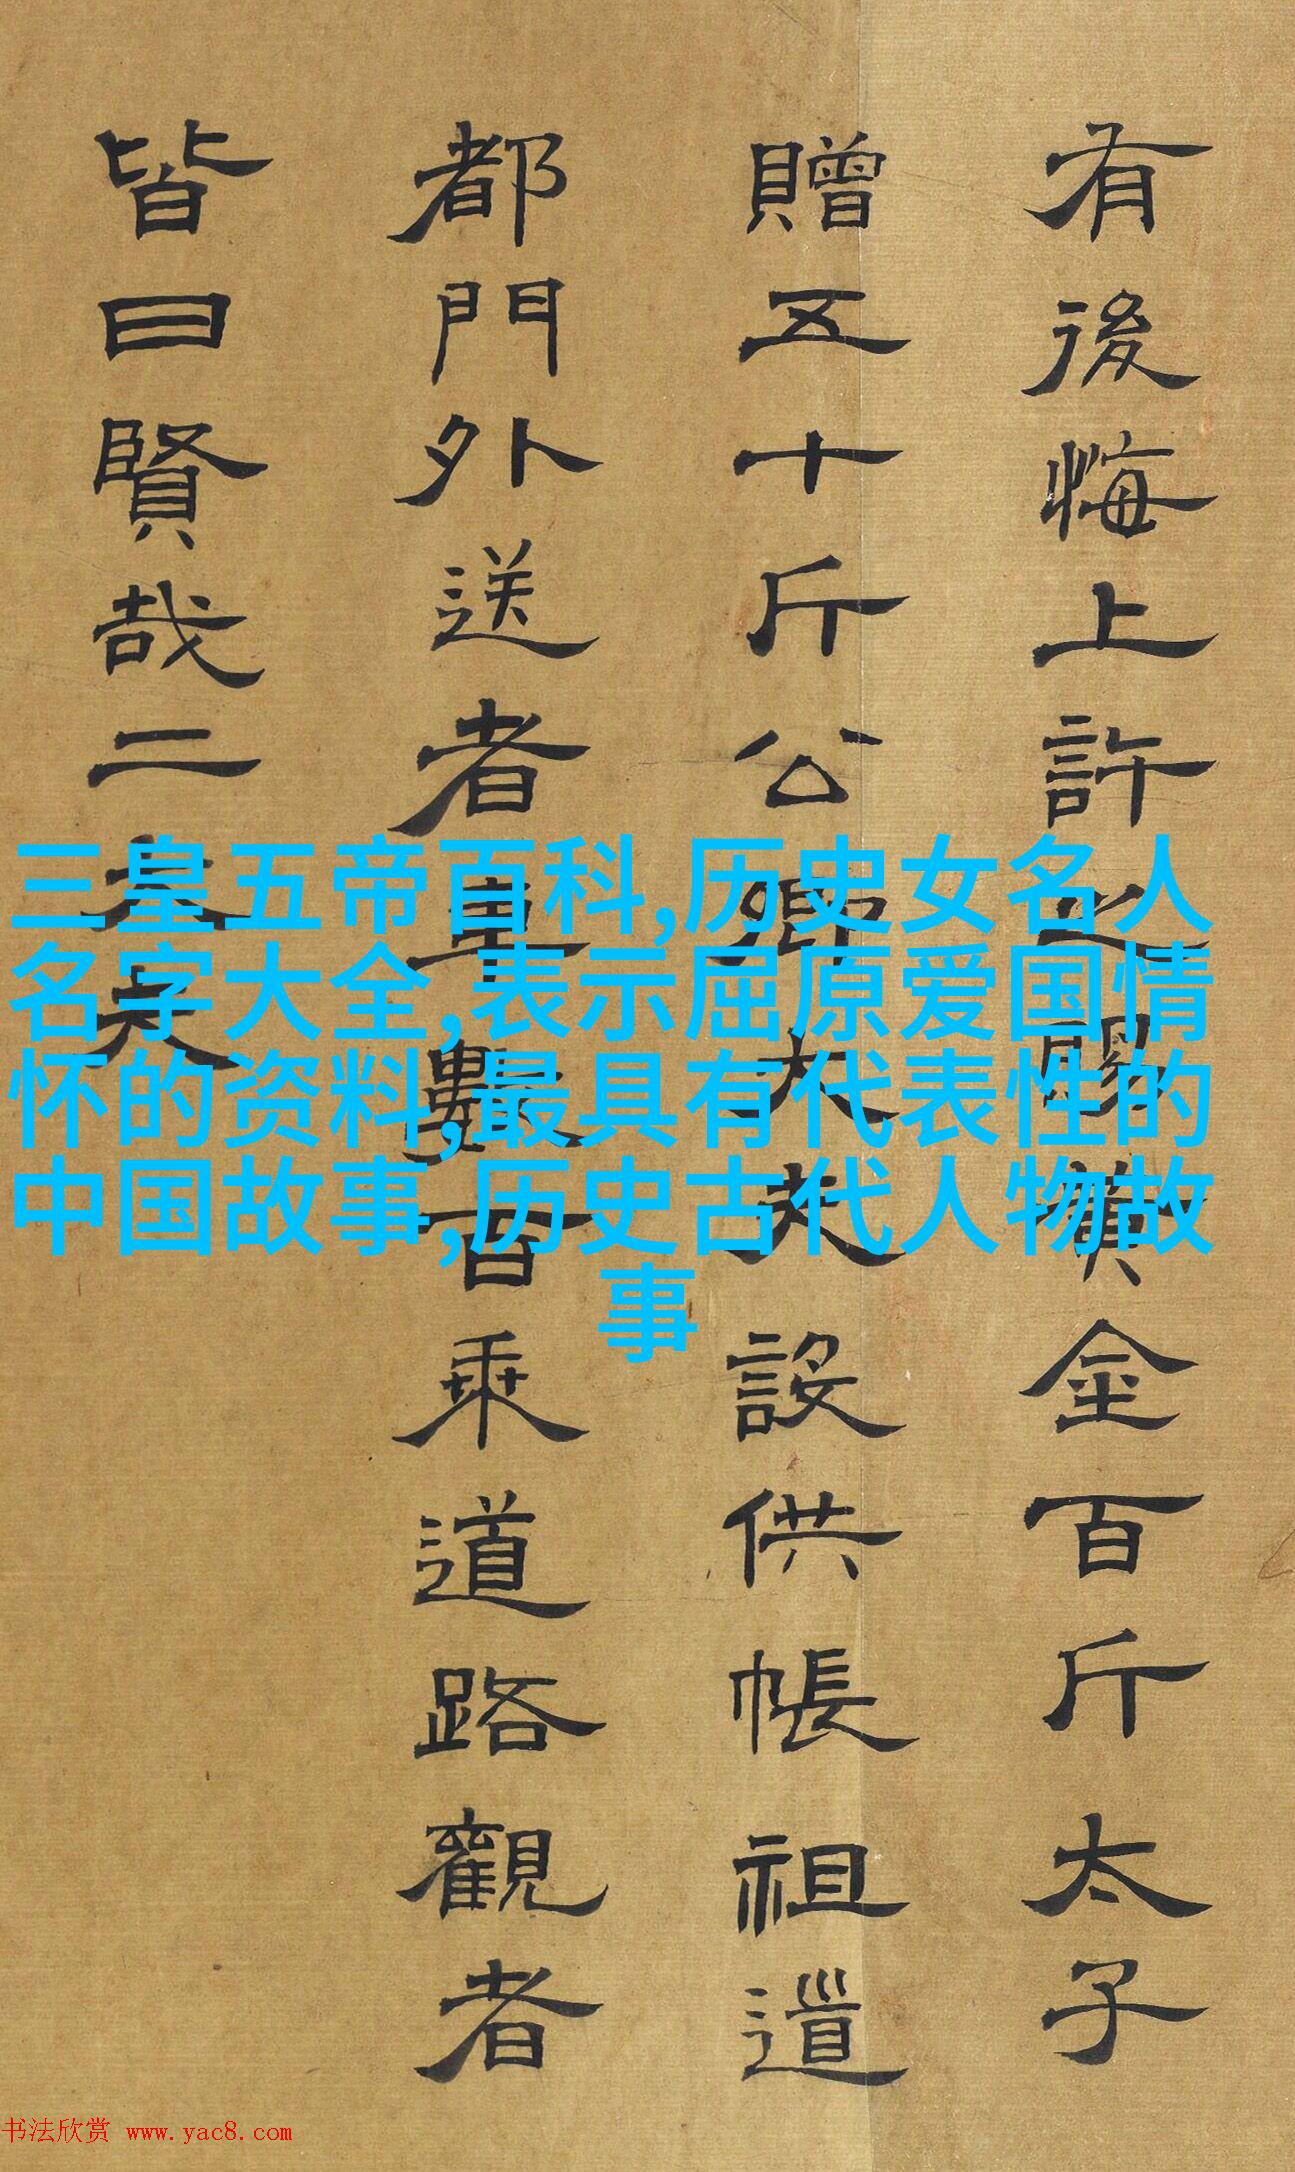 有後悔上許之賜黃金百斤太子
贈五十斤公卿大夫設供帳祖道
都門外送者車數百乘道路觀者
皆曰賢哉二大夫
三皇五帝百科,历史女名人
名字大全,表示屈原爱国情
怀的资料,最具有代表性的
中国故事,历史古代人物故
事
书法欣赏 www.yac8.com